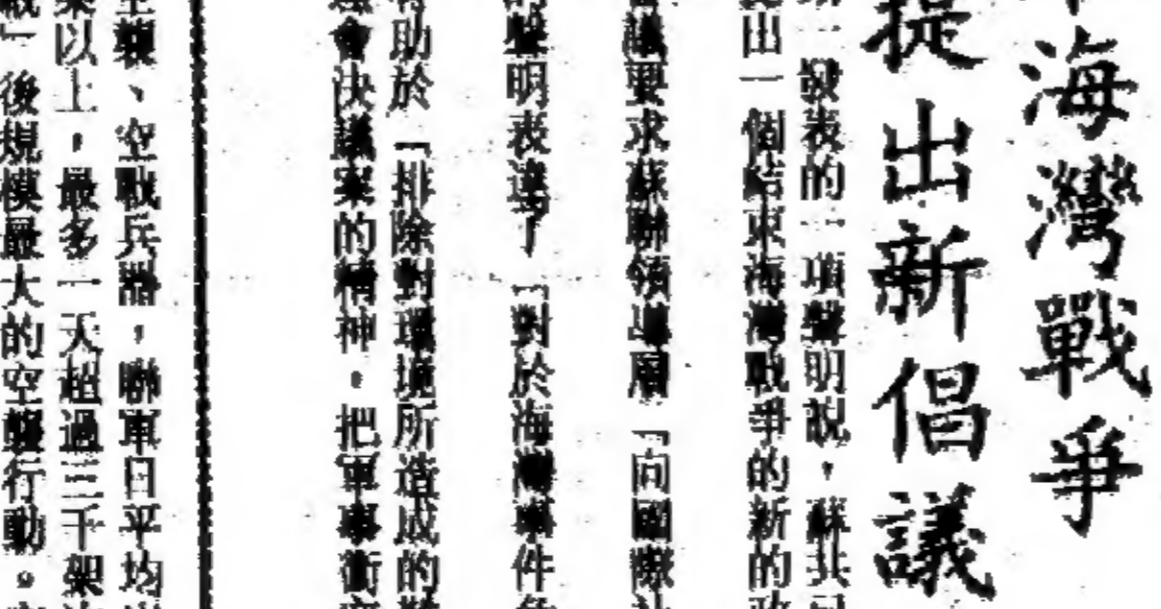 海灣戰爭
提出新倡議
發表的一項聲明說，蘇共
出一個結束海灣戰爭的新的
議要求蘇聯領導層「向國際
聲明表達了「對於海灣事件
助於「排除對環境所造成的
會決議案的精神，把軍事衝
、空戰兵器，聯軍日平均
以上，最多一天超過三千架
」後規模最大的空襲行動。